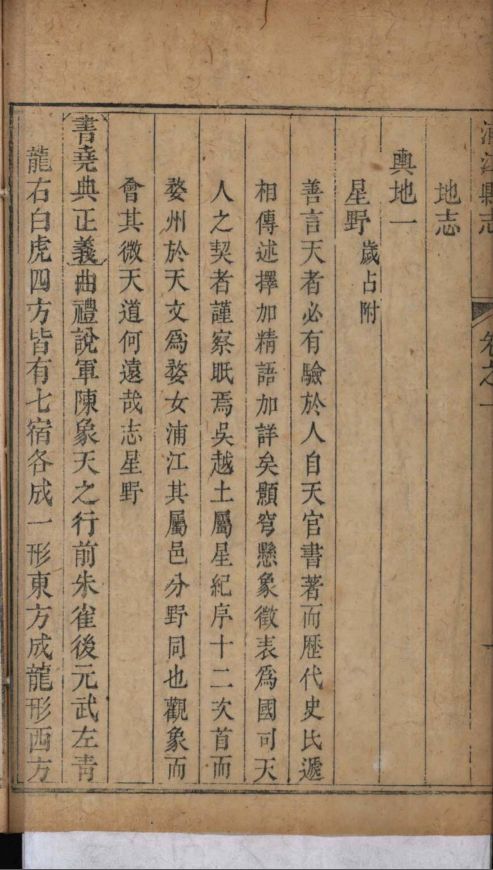 浦江縣志 卷之一
地志
輿地一
星野 歲占附
善言天者必有驗於人自天官書著而歷代史氏遞
相傳述擇加精語加詳矣顥穹懸象徵表爲國司天
人之契者謹察眂焉吳越土屬星紀序十二次首而
婺州於天文爲婺女浦江其屬邑分野同也觀象而
會其微天道何遠哉志星野
書堯典正義曲禮說軍陳象天之行前朱雀後元武左青
龍右白虎四方皆有七宿各成一形東方成龍形西方